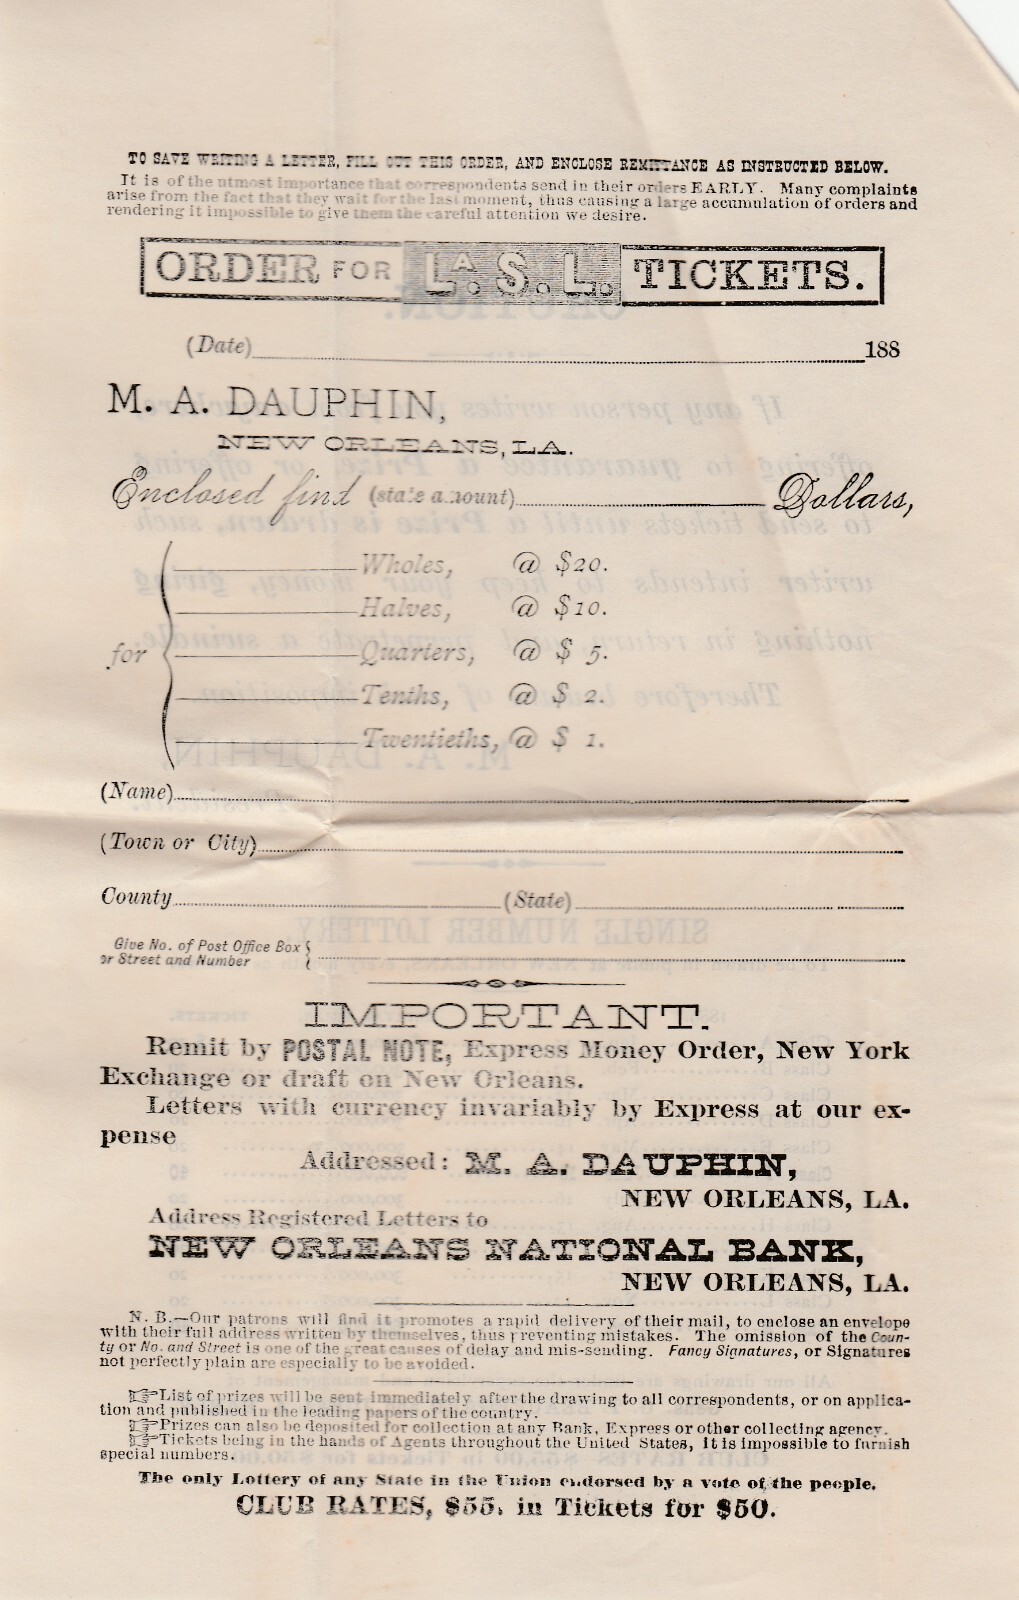 TO SAVE WRITING A LETTER, FILL OUT THIS ORDER, AND ENCLOSE REMITTANCE AS INSTRUCTED BELOW.
It is of the utmost importance that correspondents send in their orders EARLY. Many complaints
arise from the fact that they wait for the last moment, thus causing a large accumulation of orders and
rendering it impossible to give them the careful attention we desire.
ORDER FOR LA. S. L. TICKETS.
(Date) 188
M. A. DAUPHIN,
NEW ORLEANS, LA.
Enclosed find (state amount) Dollars,
Wholes, @ $20.
Halves, @ $10.
for Quarters, @ $ 5.
Tenths, @ $ 2.
Twentieths, @ $ 1.
(Name)
(Town or City)
County (State)
Give No. of Post Office Box
or Street and Number
IMPORTANT.
Remit by POSTAL NOTE, Express Money Order, New York
Exchange or draft on New Orleans.
Letters with currency invariably by Express at our ex-
pense
Addressed: M. A. DAUPHIN,
NEW ORLEANS, LA.
Address Registered Letters to
NEW ORLEANS NATIONAL BANK,
NEW ORLEANS, LA.
N. B.—Our patrons will find it promotes a rapid delivery of their mail, to enclose an envelope
with their full address written by themselves, thus preventing mistakes. The omission of the Coun-
ty or No. and Street is one of the great causes of delay and mis-sending. Fancy Signatures, or Signatures
not perfectly plain are especially to be avoided.
☞List of prizes will be sent immediately after the drawing to all correspondents, or on applica-
tion and published in the leading papers of the country.
☞Prizes can also be deposited for collection at any Bank, Express or other collecting agency.
☞Tickets being in the hands of Agents throughout the United States, it is impossible to furnish
special numbers.
The only Lottery of any State in the Union endorsed by a vote of the people.
CLUB RATES, $55. in Tickets for $50.